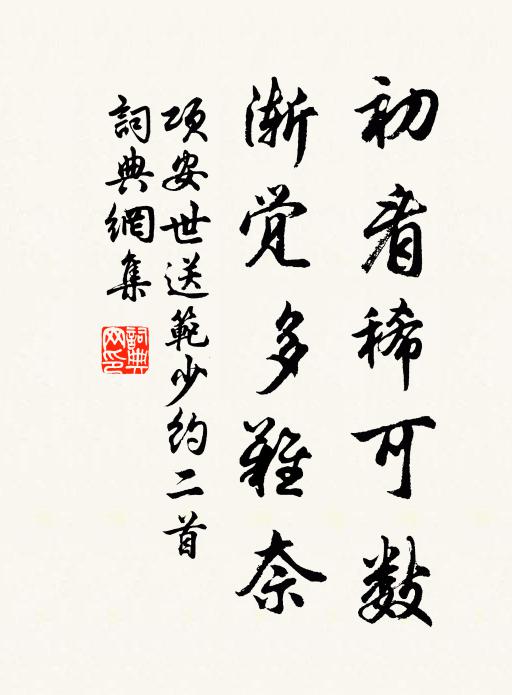 初看稀可数
渐觉多难奈
项安世送範少约二首
詞典網集
詞典網印